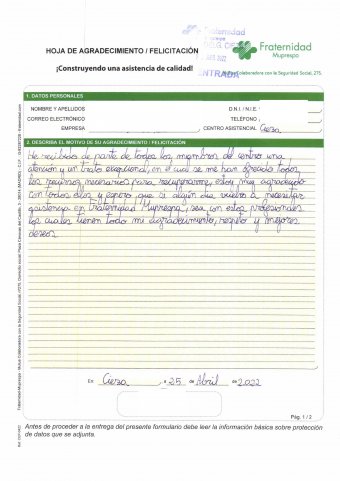 Fraternidad
ENTRADA
HOJA DE AGRADECIMIENTO / FELICITACIÓN
¡Construyendo una asistencia de calidad!
Fraternidad
Muprespa
Colaboradora con la Seguridad Social, 275
1. DATOS PERSONALES
NOMBRE Y APELLIDOS
D.N.I. / N.I.E. :
CORREO ELECTRÓNICO
TELÉFONO :
EMPRESA
CENTRO ASISTENCIAL Cieza
2. DESCRIBA EL MOTIVO DE SU AGRADECIMIENTO / FELICITACIÓN
He recibido de parte de todos los miembros del centro una
atención y un trato excepcional, en el cual se me han ofrecido todos
los recursos necesarios para recuperarme, estoy muy agradecido
con todos ellos y espero que si algún día vuelvo a necesitar
asistencia en Fraternidad Muprespa, sea con estos profesionales
los cuales tienen todo mi agradecimiento, respeto y mejores
deseos.
En Cieza, a 25 de Abril de 2022
Pág. 1 / 2
Antes de proceder a la entrega del presente formulario debe leer la información básica sobre protección
de datos que se adjunta.